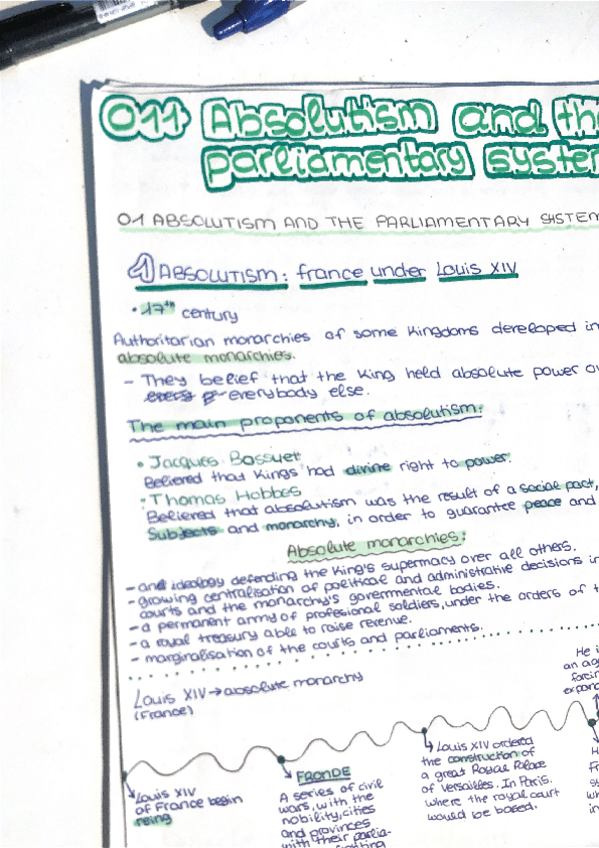 011 Absolutism and the
parliamentary system
01 ABSOLUTISM AND THE PARLIAMENTARY SISTEM
1 ABSOLUTISM: france under Louis XIV
• 17th century
Authoritarian monarchies of some kingdoms dereloped in
absolute monarchies.
- They belief that the king held absolute power
everybody else.
The main proponents of absolutism:
• Jacques Bossuet
Believed that kings had divine right to power.
• Thomas Hobbes
Believed that absolutism was the result of a social pact,
Subjects and monarchy, in order to guarantee peace and
Absolute monarchies:
- and ideology defending the king's supermacy over all others.
- growing centralisation of political and administrative decisions in
courts and the monarchy's govermental bodies.
- a permanent army of profesional soldiers, under the orders of
- a royal treasury able to raise revenue.
- marginalisation of the courts and parliaments.
Louis XIV → absolute monarchy
(France)
He
an
forcin
expan
Louis XIV
of France begin
reing
FRONDE
A series of civil
wars, with the
nobility, cities
and provinces
with their parlia-
Louis XIV ordered
the construction of
a great Royal Palace
of Versailles. In Paris.
where the royal court
would be based.